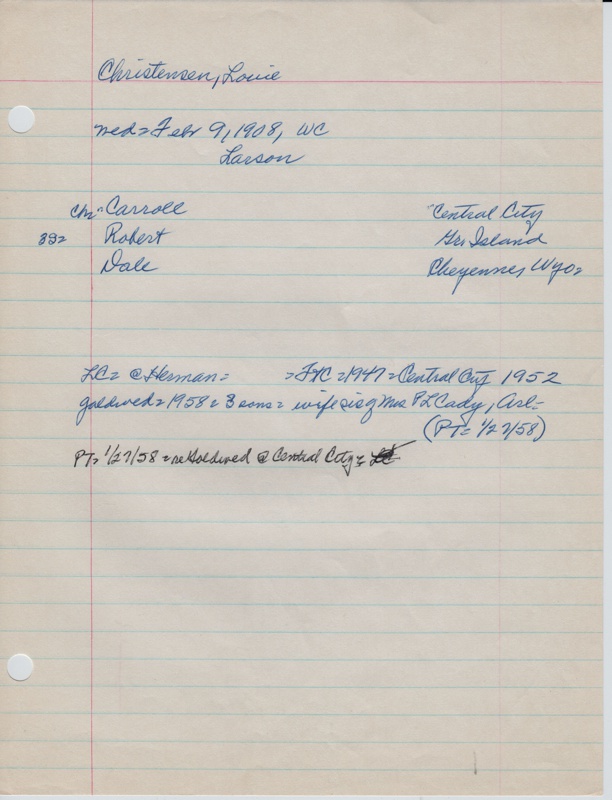 Christensen, Louie
med = Febr 9, 1908, WC
Larson
Chr = Carroll Central City
392 Robert Gr. Island
Dale Cheyenne, Wyo =
LC = @ Herman = = 1947 = Central City 1952
goldwed = 1958 = 3 sons = wife sis of Mrs P L Cady, Arl =
(PT = 1/27/58)
PT = 1/27/58 = re Goldwed @ Central City =